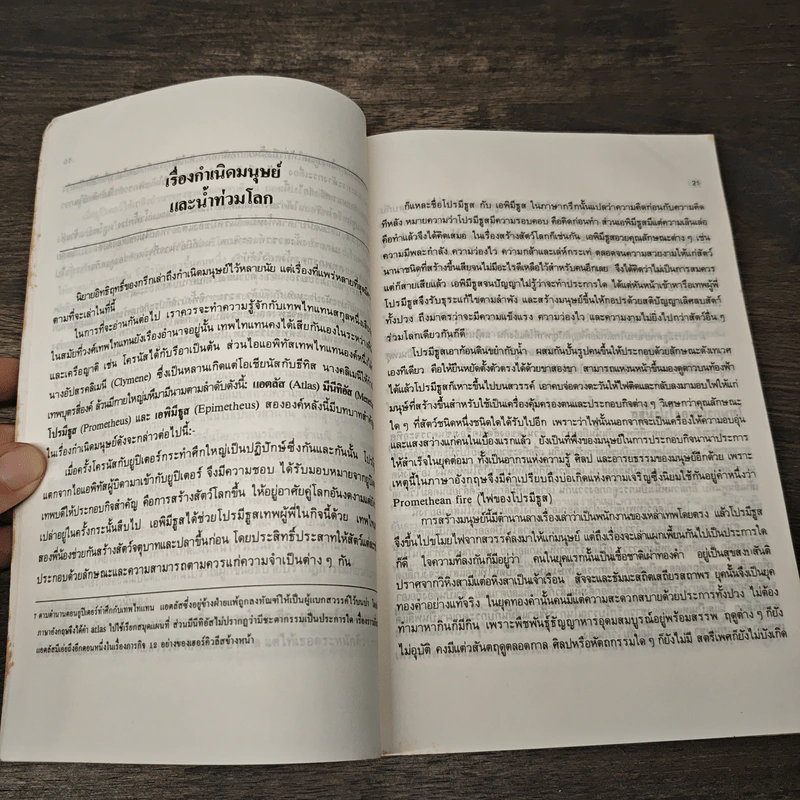 เรื่องกำเนิดมนุษย์
และน้ำท่วมโลก
นิยายอิทธิฤทธิ์ของกรีกเล่าถึงกำเนิดมนุษย์ไว้หลายนัย แต่เรื่องที่แพร่หลายที่สุด
ตามที่จะเล่าในที่นี้
ในการที่จะอ่านกันต่อไป เราควรจะทำความรู้จักกับเทพไทแทนสกุลหนึ่งเสีย
ในสมัยที่วงศ์เทพไทแทนยังเรืองอำนาจอยู่นั้น เทพไทแทนคงได้เสียกันเองในระหว่าง
และเครือญาติ เช่น โครนัสได้กับรีอาเป็นต้น ส่วนไอแอพิทัสเทพไททแนองค์หนึ่ง
นางอัปสรคลิมีนี (Clymene) ซึ่งเป็นหลานเกิดแต่โอเชียนัสกับธีทิส นางคลิมีนีให้
เทพบุตรสี่องค์ ล้วนมีกายใหญ่หึมามีนามตามลำดับดังนี้: แอตลัส (Atlas) มีนีทิอัส
โปรมีธูส (Prometheus) และ เอพิมีธูส (Epimetheus) สององค์หลังนี้มีบทบาทสำคัญ
ในเรื่องกำเนิดมนุษย์ดังจะกล่าวต่อไปนี้:-
เมื่อครั้งโครนัสกับยูปิเตอร์กระทำศึกใหญ่เป็นปฏิปักษ์ซึ่งกันและกันนั้น
แตกจากไอแอพิทัสผู้บิดามาเข้ากับยูปิเตอร์ จึงมีความชอบ ได้รับมอบหมายจาก
เทพบดีให้ประกอบกิจสำคัญ คือการสร้างสัตว์โลกขึ้น ให้อยู่อาศัยคู่โลกอันงดงาม
เปล่าอยู่ในครั้งกระนั้นสืบไป เอพิมีธูสได้ช่วยโปรมีธูสเทพผู้พี่ในกิจนี้ด้วย
สองพี่น้องช่วยกันสร้างสัตว์จตุบาทและปลาขึ้นก่อน โดยประสิทธิ์ประสาทให้สัตว์แต่ละ
ประกอบด้วยลักษณะและความสามารถตามควรแก่ความจำเป็นต่าง ๆ กัน
7 ตามตำนานตอนยูปิเตอร์ทำศึกกับเทพไทแทน แอตลัสซึ่งอยู่ข้างฝ่ายแพ้ถูกลงทัณฑ์ให้เป็นผู้แบกสวรรค์ไว้บนบ่า
ภาษาอังกฤษจึงได้คำ atlas ไปใช้เรียกสมุดแผนที่ ส่วนมีนีทิอัสไม่ปรากฏว่ามีชะตากรรมเป็นประการใด
แอตลัสมีเอ่ยถึงอีกตอนหนึ่งในเรื่องภารกิจ 12 อย่างของเฮอร์คิวลีสข้างหน้า
21
ก็แหละชื่อโปรมีธูส กับ เอพิมีธูส ในภาษากรีกนั้นแปลว่าความคิดก่อนกับความคิด
ทีหลัง หมายความว่าโปรมีธูสมีความรอบคอบ คือคิดก่อนทำ ส่วนเอพิมีธูสมีแต่ความเลินเล่อ
คือทำแล้วจึงได้คิดเสมอ ในเรื่องสร้างสัตว์โลกก็เช่นกัน เอพิมีธูสอวยคุณลักษณะต่าง ๆ เช่น
ความมีพละกำลัง ความว่องไว ความกล้าและเล่ห์กระเท่ ตลอดจนความสวยงามให้แก่สัตว์
นานาชนิดที่สร้างขึ้นเสียจนไม่มีอะไรดีเหลือไว้สำหรับคนอีกเลย จึงได้คิดว่าไม่เป็นการสมควร
แต่ก็สายเสียแล้ว เอพิมีธูสจนปัญญาไม่รู้ว่าจะทำประการใด ได้แต่หันหน้าเข้าหารือเทพผู้พี่
โปรมีธูสจึงรับธุระแก้ไขตามลำพัง และสร้างมนุษย์ขึ้นให้กอปรด้วยสติปัญญาเลิศลบสัตว์
ทั้งปวง ถึงมาตรว่าจะมีความแข็งแรง ความว่องไว และความงามไม่ยิ่งไปกว่าสัตว์อื่น ๆ
ร่วมโลกเดียวกันก็ดี
โปรมีธูสเอาก้อนดินขยำกับน้ำ ผสมกันปั้นรูปคนขึ้นให้ประกอบด้วยลักษณะดังเทเวศ
เองทีเดียว คือให้ยืนหยัดตั้งตัวตรงได้ด้วยขาสองขา สามารถแหงนหน้าขึ้นมองดูดาวบนท้องฟ้า
ได้แล้วโปรมีธูสก็เหาะขึ้นไปบนสวรรค์ เอาคบจ่อดวงตะวันให้ไฟติดและกลับลงมามอบไฟให้แก่
มนุษย์ที่สร้างขึ้นสำหรับใช้เป็นเครื่องคุ้มครองตนและประกอบกิจต่าง ๆ วิเศษกว่าคุณลักษณะ
ใด ๆ ที่สัตว์ชนิดหนึ่งชนิดใดได้รับไปอีก เพราะว่าไฟนั้นนอกจากจะเป็นเครื่องให้ความอบอุ่น
และแสงสว่างแก่คนในเบื้องแรกแล้ว ยังเป็นที่พึ่งของมนุษย์ในการประกอบกิจนานาประการ
ให้สำเร็จในยุคต่อมา ทั้งเป็นอากรแห่งความรู้ ศิลป และอารยธรรมของมนุษย์อีกด้วย เพราะ
เหตุนี้ในภาษาอังกฤษจึงมีคำเปรียบถึงบ่อเกิดแห่งความเจริญซึ่งนิยมใช้กันอยู่คำหนึ่งว่า
Promethean fire (ไฟของโปรมีธูส)
การสร้างมนุษย์นี้มีตำนานลางเรื่องเล่าว่าเป็นพนักงานของเหล่าเทพโดยตรง แล้วโปรมีธูส
จึงขึ้นไปขโมยไฟจากสวรรค์ลงมาให้แก่มนุษย์ แต่ถึงเรื่องจะเล่าแผกเพี้ยนกันไปเป็นประการใด
ก็ดี ใจความที่ลงกันก็มีอยู่ว่า คนในยุคแรกนั้นเป็นเชื้อชาติเผ่าทองคำ อยู่เป็นสุขสงบสันติ
ปราศจากวิหิงสามีแต่อหิงสาเป็นเจ้าเรือน สัจจะและธัมมะสถิตเสถียรสถาพร ยุคนั้นจึงเป็นยุค
ทองคำอย่างแท้จริง ในยุคทองคำนั้นคนมีแต่ความสะดวกสบายด้วยประการทั้งปวง ไม่ต้อง
ทำมาหากินก็มีกิน เพราะพืชพันธุ์ธัญญาหารอุดมสมบูรณ์อยู่พร้อมสรรพ ฤดูต่าง ๆ ก็ยัง
ไม่อุบัติ คงมีแต่วสันตฤดูตลอดกาล ศิลปหรือหัตถกรรมใด ๆ ก็ยังไม่มี สตรีเพศก็ยังไม่บังเกิด